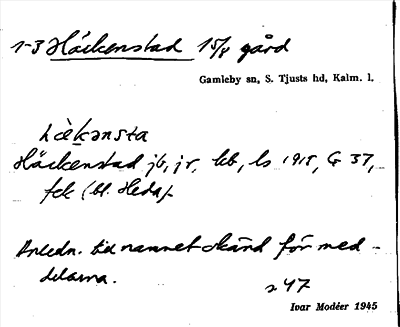 1-3 Häckenstad 15/8 gård
Gamleby sn, S. Tjusts hd, Kalm. l.
hàkənsta
Häckenstad jb, jr, kb, ls 1915, G 37,
fck (bl. Heda).
Anledn. till namnet okänd för med-
delarna.
s 47
Ivar Modéer 1945